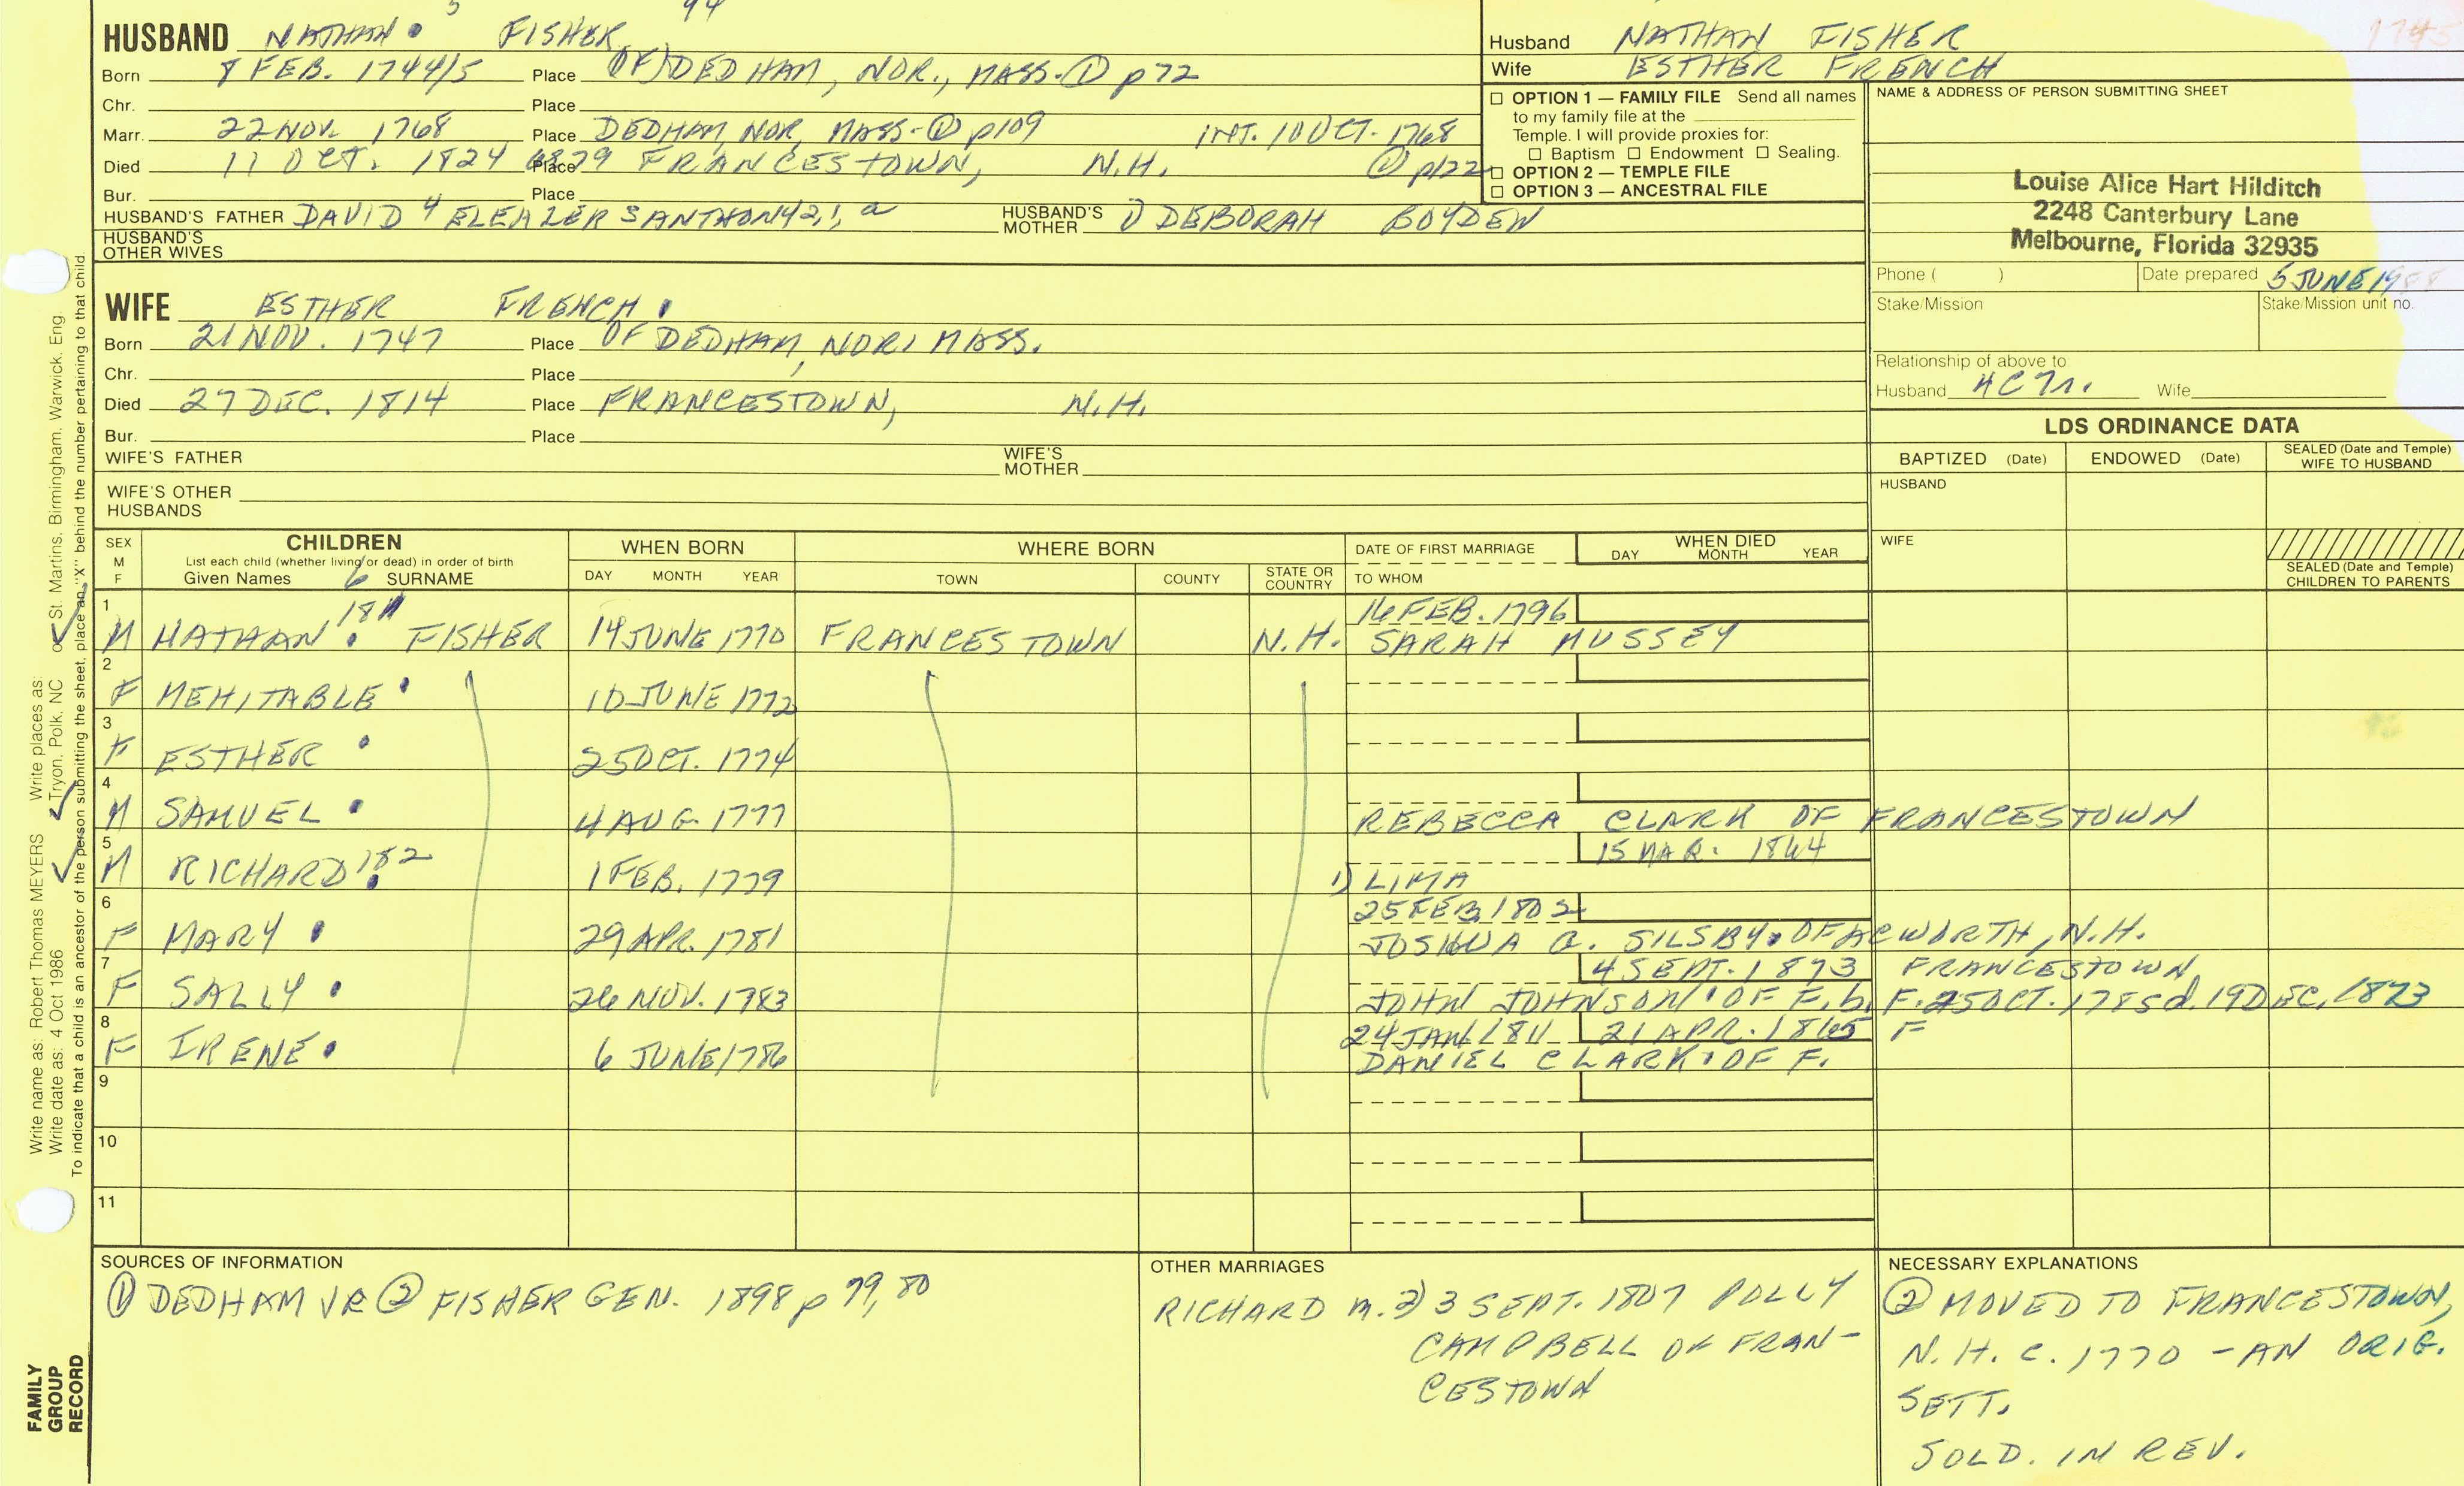 5 94
HUSBAND NATHAN • FISHER
Born 8 FEB. 1744/5 Place (OF) DEDHAM, NOR., MASS.-① p72
Chr. Place
Marr. 22 NOV. 1768 Place DEDHAM, NOR, MASS-① p109 INT. 10 OCT. 1768
Died 11 OCT. 1824 Place FRANCESTOWN, N.H. ① p122
Bur. Place
HUSBAND'S FATHER DAVID 4 ELEAZER 3 ANTHONY 2, 1, a HUSBAND'S MOTHER 1) DEBORAH BOYDEN
HUSBAND'S OTHER WIVES
WIFE ESTHER FRENCH •
Born 21 NOV. 1747 Place OF DEDHAM, NOR, MASS.
Chr. Place
Died 27 DEC. 1814 Place FRANCESTOWN, N.H.
Bur. Place
WIFE'S FATHER WIFE'S MOTHER
WIFE'S OTHER HUSBANDS
Husband NATHAN FISHER
Wife ESTHER FRENCH
1745
☐ OPTION 1 — FAMILY FILE Send all names
to my family file at the
Temple. I will provide proxies for:
☐ Baptism ☐ Endowment ☐ Sealing.
☐ OPTION 2 — TEMPLE FILE
☐ OPTION 3 — ANCESTRAL FILE
NAME & ADDRESS OF PERSON SUBMITTING SHEET
Louise Alice Hart Hilditch
2248 Canterbury Lane
Melbourne, Florida 32935
Phone ( ) Date prepared 5 JUNE 19
Stake/Mission Stake/Mission unit no.
Relationship of above to
Husband 4C7r. Wife
LDS ORDINANCE DATA
BAPTIZED (Date) ENDOWED (Date) SEALED (Date and Temple) WIFE TO HUSBAND
HUSBAND
WIFE
SEALED (Date and Temple) CHILDREN TO PARENTS
SEX M F
CHILDREN
List each child (whether living or dead) in order of birth
Given Names 6 SURNAME
WHEN BORN DAY MONTH YEAR
WHERE BORN TOWN COUNTY STATE OR COUNTRY
DATE OF FIRST MARRIAGE
TO WHOM
WHEN DIED DAY MONTH YEAR
1 16 FEB. 1796
M NATHAN • 181 FISHER 14 JUNE 1770 FRANCESTOWN N.H. SARAH MUSSEY
2
F MEHITABLE • 10 JUNE 1772
3
F ESTHER • 25 OCT. 1774
4
M SAMUEL • 4 AUG. 1777 REBECCA CLARK OF FRANCESTOWN
5 15 MAR. 1844
M RICHARD • 182 1 FEB. 1779 1) LIMA
6 25 FEB. 1802
F MARY • 29 APR. 1781 JOSHUA A. SILSBY • OF ACWORTH, N.H.
7 4 SEPT. 1873 FRANCESTOWN
F SALLY • 26 NOV. 1783 JOHN JOHNSON • OF F. b. F. 25 OCT. 1785 d. 19 DEC. 1873
8 24 JAN 1811 21 APR. 1865 F
F IRENE • 6 JUNE 1786 DANIEL CLARK • OF F.
9
10
11
SOURCES OF INFORMATION
① DEDHAM VR ② FISHER GEN. 1898 p 79, 80
OTHER MARRIAGES
RICHARD m. 2) 3 SEPT. 1807 POLLY
CAMPBELL OF FRAN-
CESTOWN
NECESSARY EXPLANATIONS
② MOVED TO FRANCESTOWN,
N.H. C. 1770 - AN ORIG.
SETT.
SOLD. IN REV.
Write name as: Robert Thomas MEYERS Write places as:
Write date as: 4 Oct 1986 Tryon, Polk, NC or St. Martins, Birmingham, Warwick, Eng
To indicate that a child is an ancestor of the person submitting the sheet, place an "X" behind the number pertaining to that child.
FAMILY
GROUP
RECORD